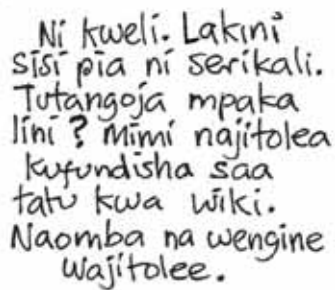 Ni kweli. Lakini
sisi pia ni serikali.
Tutangoja mpaka
lini? Mimi najitolea
kufundisha saa
tatu kwa wiki.
Naomba na wengine
wajitolee.